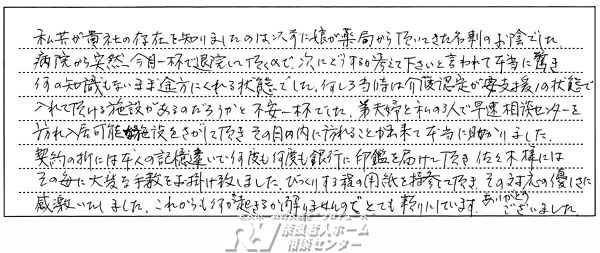 私共が貴社の存在を知りましたのは次女に娘が薬局から頂いてきた名刺のお陰でした
病院から突然、今月一杯で退院して頂くので、次にどうするか考えて下さいと言われて本当に驚き
何の知識もないまま途方にくれる状態でした。何しろ当時は介護認定が要支援1の状態で
入れて頂ける施設があるのだろうかと不安一杯でした。弟夫婦と私の3人で早速相談センターを
訪れ入居可能な施設をさがして頂きその日の内に訪れることが出来て本当に助かりました。
契約の折には本人の記憶違いで何度も何度も銀行に印鑑を届けて頂き佐々木様には
その毎に大変な手数をお掛け致しました、びっくりする程の用紙を持参して頂き、その対応の優しさに
感激いたしました、これからも何が起きるか解りませんのでとても頼りにしています。ありがとう
ございました。
奈良老人ホーム
相談センター